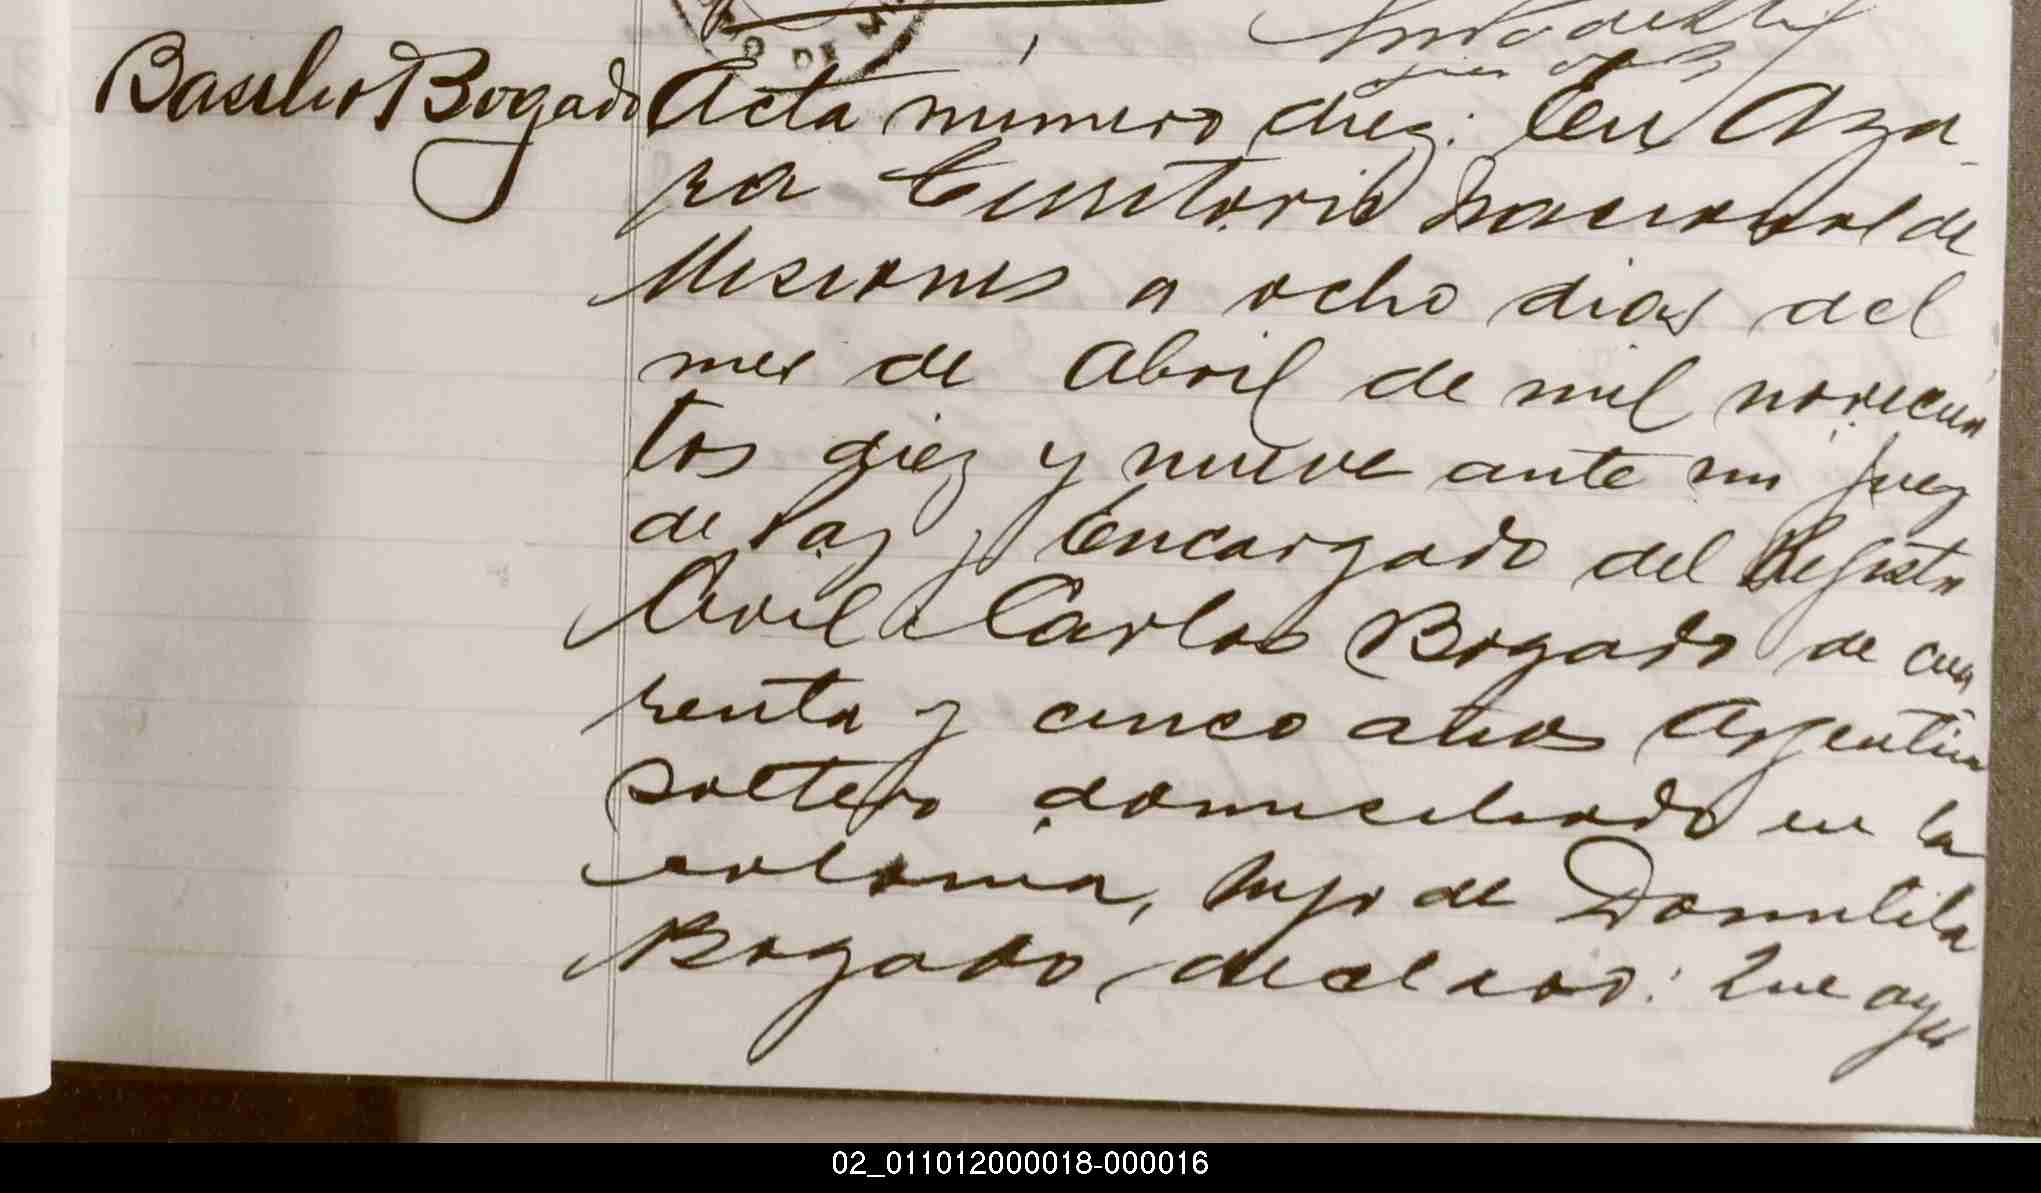 Basilio Bogado
Acta numero diez: En Aza-
ra Territorio Nacional de
Misiones a ocho dias del
mes de Abril de mil novecien
tos diez y nueve ante mi Juez
de Paz y Encargado del Registro
Civil Carlos Bogado de cua
renta y cinco años Argentino
soltero domiciliado en la
colonia, hijo de Domitila
Bogado, declaro: Que ayer
02_011012000018-000016